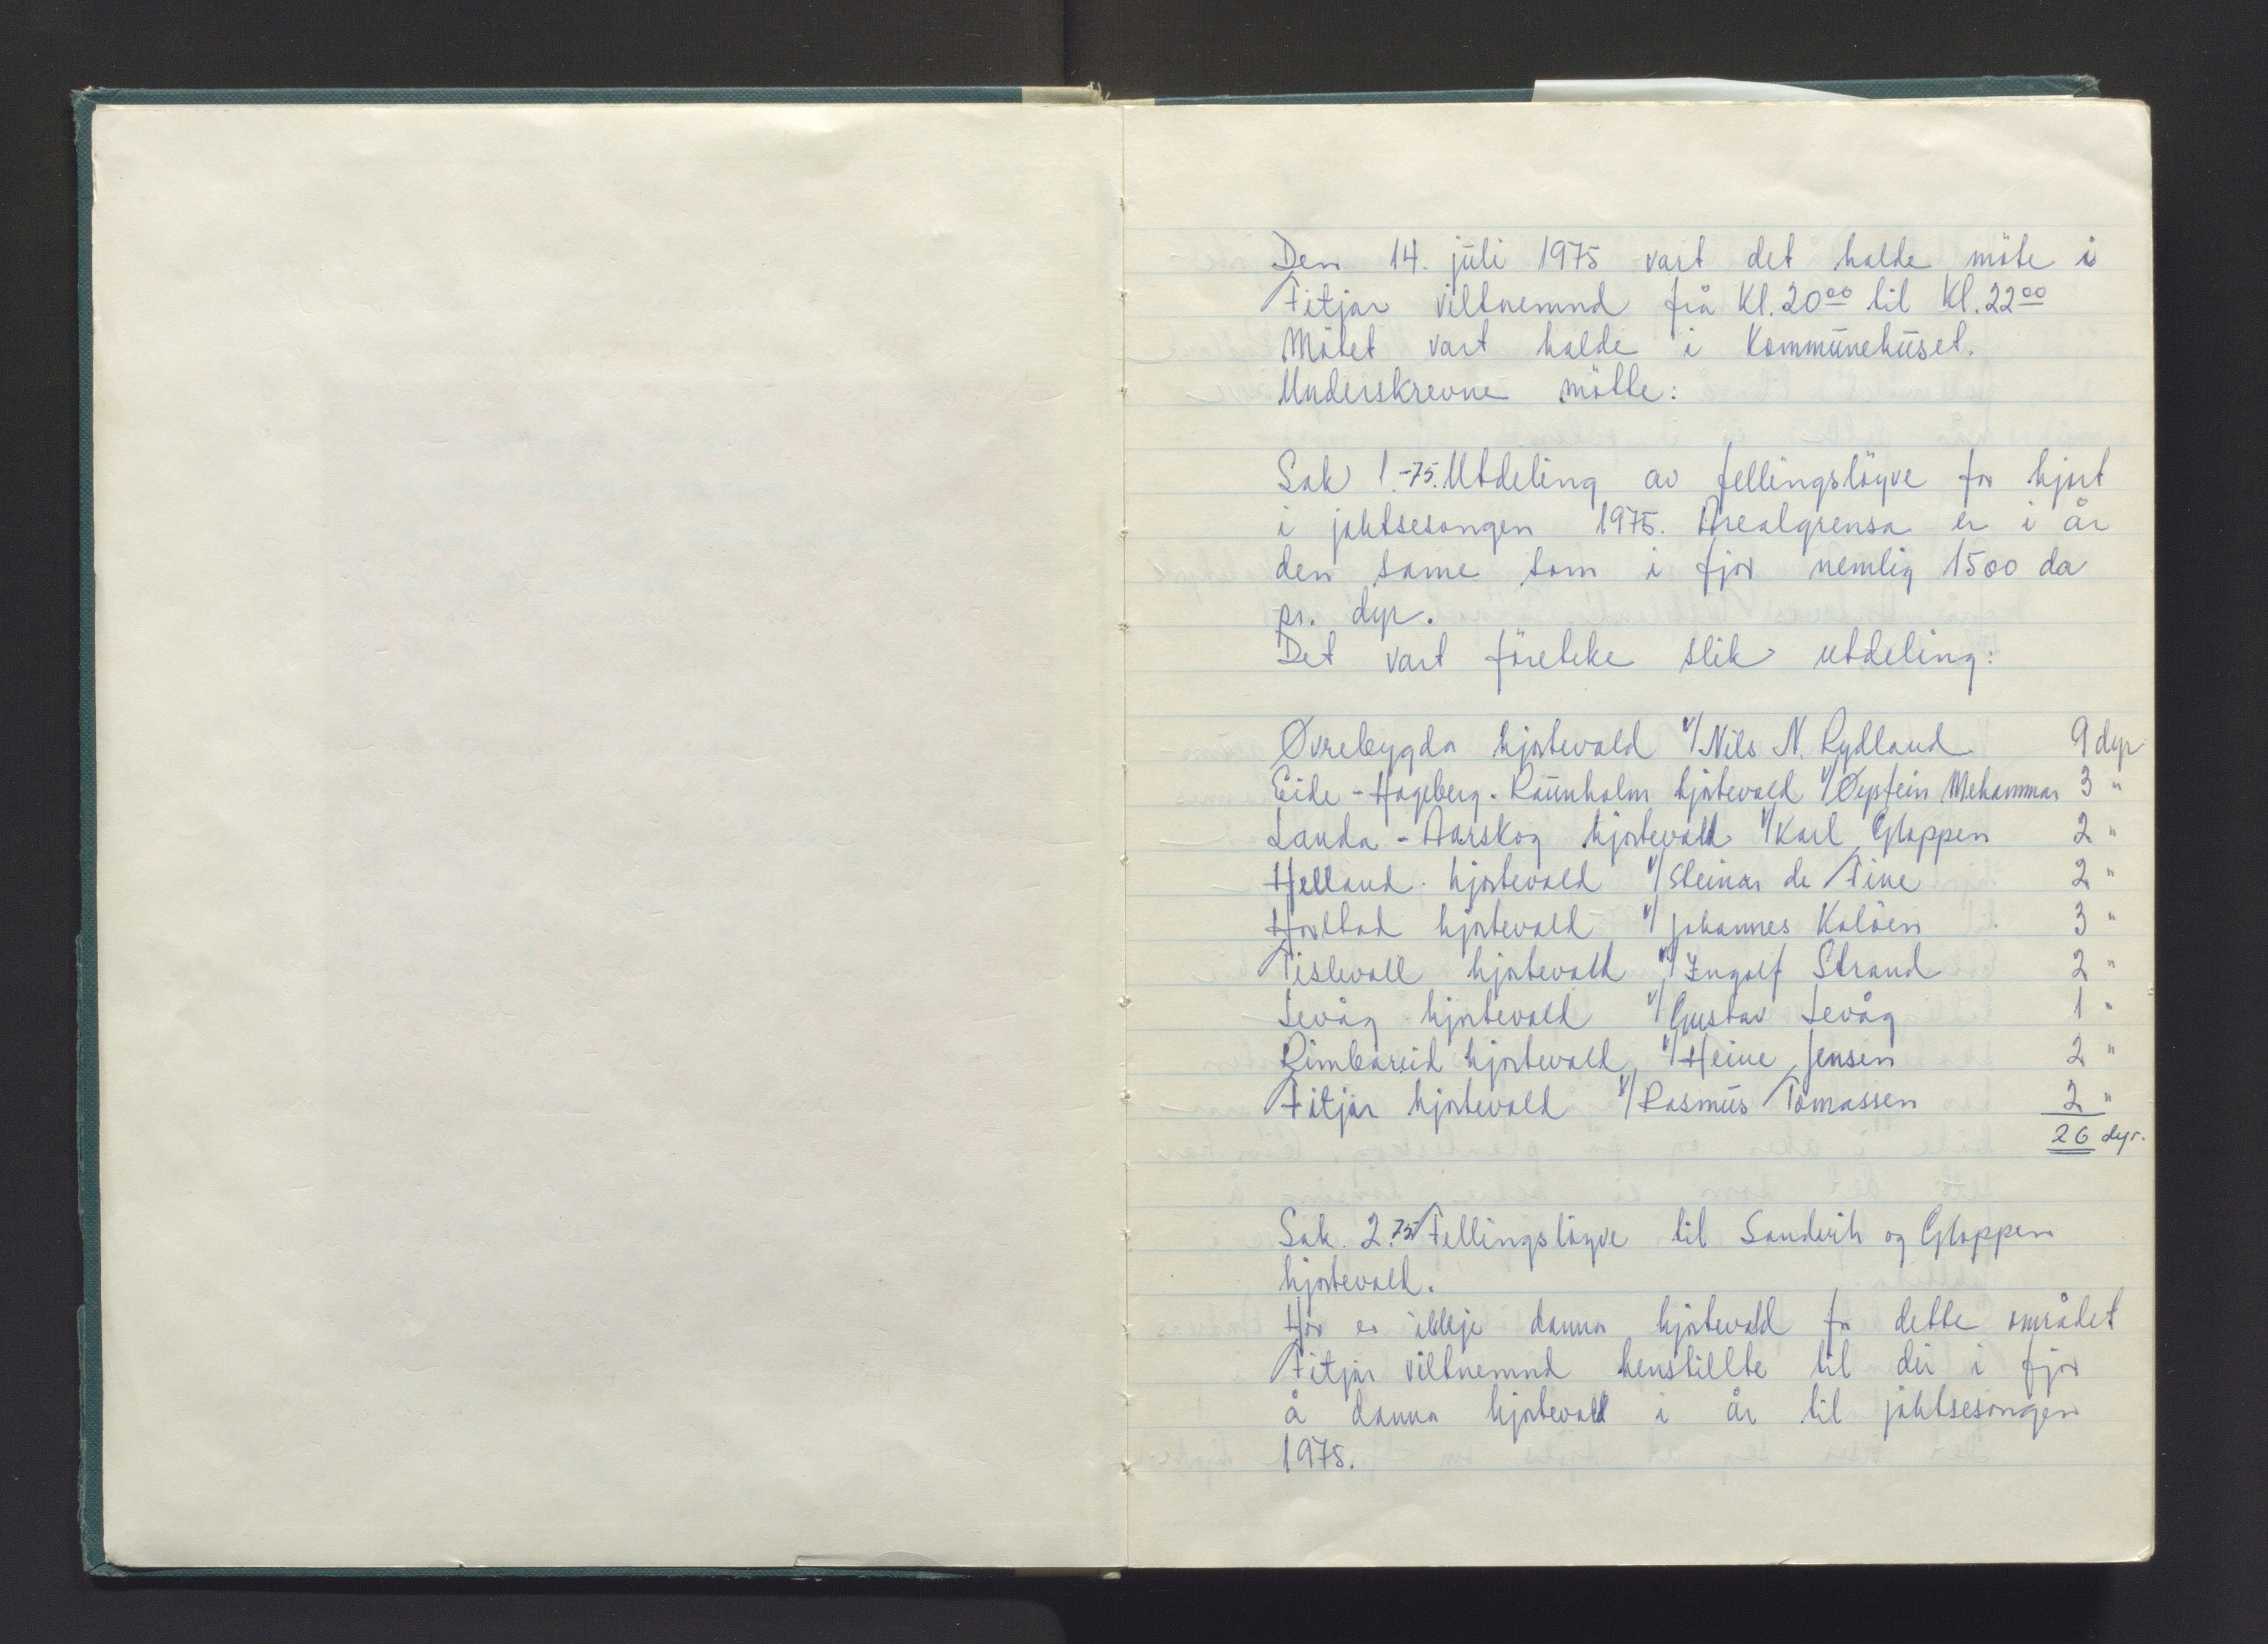 Den 14. jüli 1975 vart det halde möte i
Fitjar viltnemnd frå Kl. 20⁰⁰ til Kl. 22⁰⁰
Mötet vart halde i Kommünehüset.
Underskrevne mötte:
Sak 1.-75. Utdeling av fellingslöyve for hjort
i jaktsesongen 1975. Arealgrensa er i år
den same som i fjor nemlig 1500 da
pr. dyr.
Det vart företeke slik utdeling:
Øvrebygda hjortevald v/Nils N. Rydland 9 dyr
Eide - Hageberg - Raünholm hjortevald v/Øystein Mehammar 3 "
Landa - Aarskog hjortevald v/Karl Gloppen 2 "
Helland hjortevald v/Steinar de Fine 2 "
Havltad hjortevald v/Johannes Kalöen 3 "
Tislevoll hjortevald v/Ingolf Strand 2 "
Sevåg hjortevald v/Gustav Sevåg 1 "
Rimbareid hjortevald v/Heine Jensen 2 "
Fitjar hjortevald v/Rasmüs Tomassen 2 "
26 dyr.
Sak. 2.75 Fellingslöyve til Sandvik og Gloppen
hjortevald.
Her er ikkje danna hjortevald for dette området
Fitjar viltnemnd henstillte til dei i fjor
å danna hjortevald i år til jaktsesongen
1975.